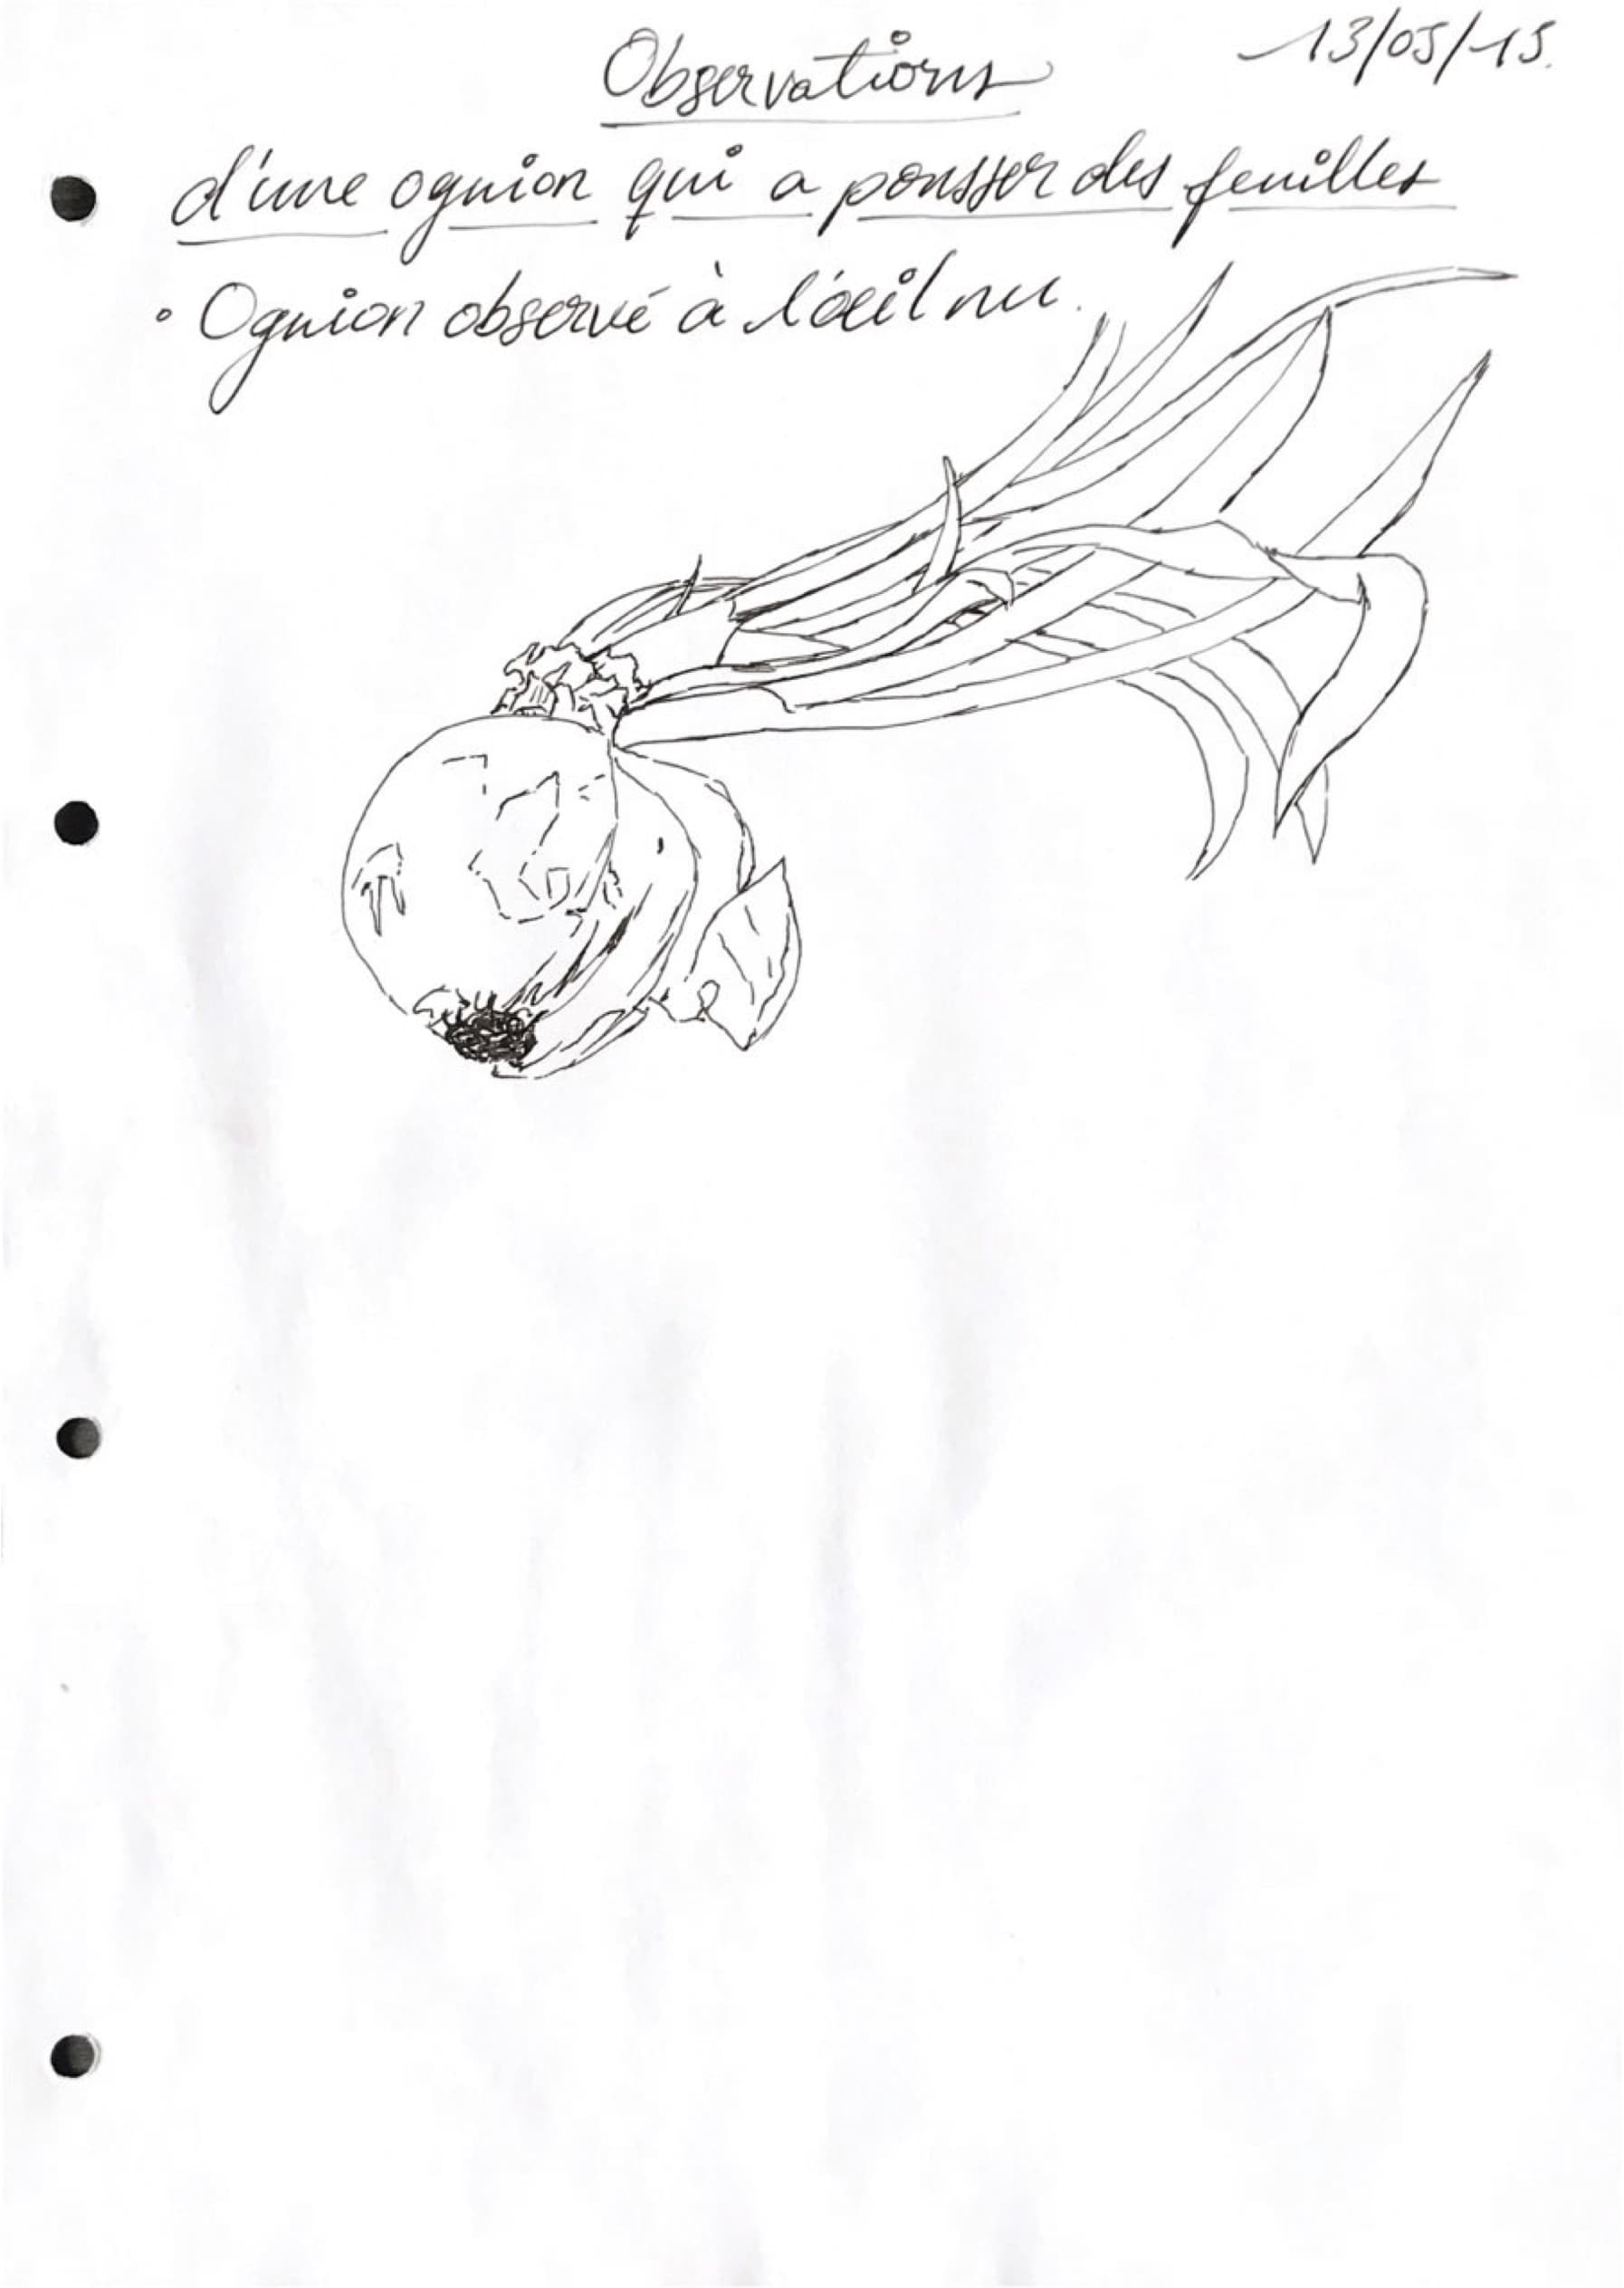 13/05/15.
Observations
d'une ognion qui a pousser des feuilles
• Ognion observé à l'oeil nu.